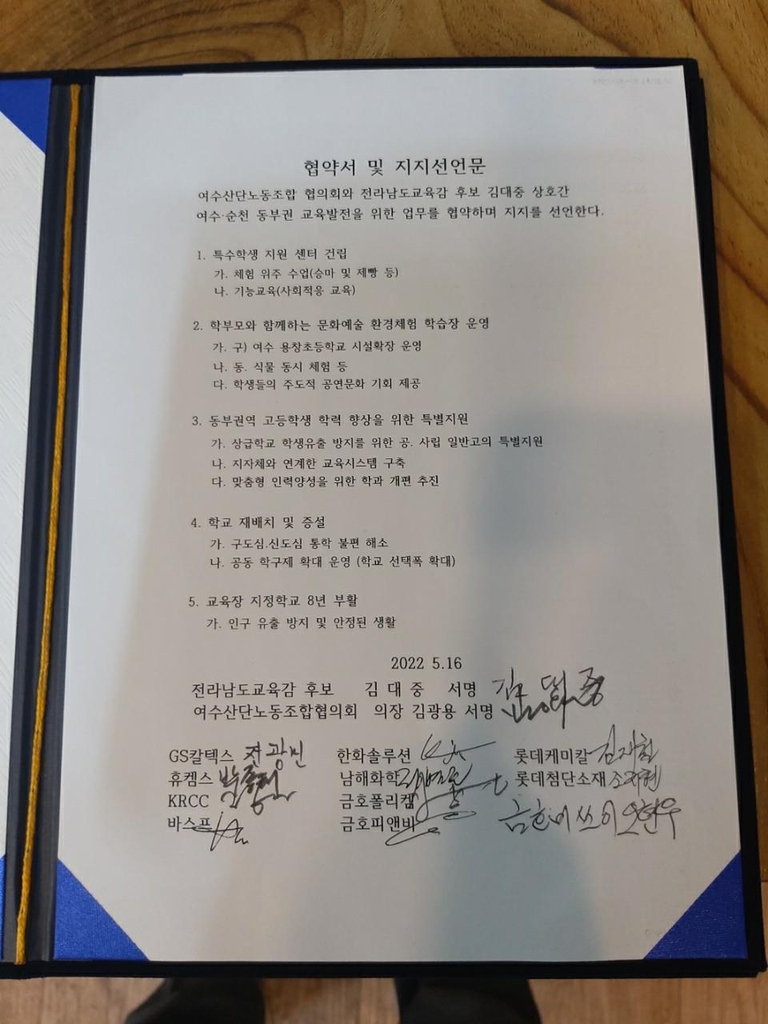 협약서 및 지지선언문
여수산단노동조합 협의회와 전라남도교육감 후보 김대중 상호간
여수·순천 동부권 교육발전을 위한 업무를 협약하며 지지를 선언한다.
1. 특수학생 지원 센터 건립
가. 체험 위주 수업(승마 및 제빵 등)
나. 기능교육(사회적응 교육)
2. 학부모와 함께하는 문화예술 환경체험 학습장 운영
가. 구) 여수 용창초등학교 시설확장 운영
나. 동. 식물 동시 체험 등
다. 학생들의 주도적 공연문화 기회 제공
3. 동부권역 고등학생 학력 향상을 위한 특별지원
가. 상급학교 학생유출 방지를 위한 공. 사립 일반고의 특별지원
나. 지자체와 연계한 교육시스템 구축
다. 맞춤형 인력양성을 위한 학과 개편 추진
4. 학교 재배치 및 증설
가. 구도심.신도심 통학 불편 해소
나. 공동 학구제 확대 운영 (학교 선택폭 확대)
5. 교육장 지정학교 8년 부활
가. 인구 유출 방지 및 안정된 생활
2022 5.16
전라남도교육감 후보 김 대 중 서명 김대중
여수산단노동조합협의회 의장 김광용 서명
GS칼텍스 한화솔루션 롯데케미칼
휴켐스 남해화학 롯데첨단소재
KRCC 금호폴리켐
바스프 금호피앤비 금호미쓰이